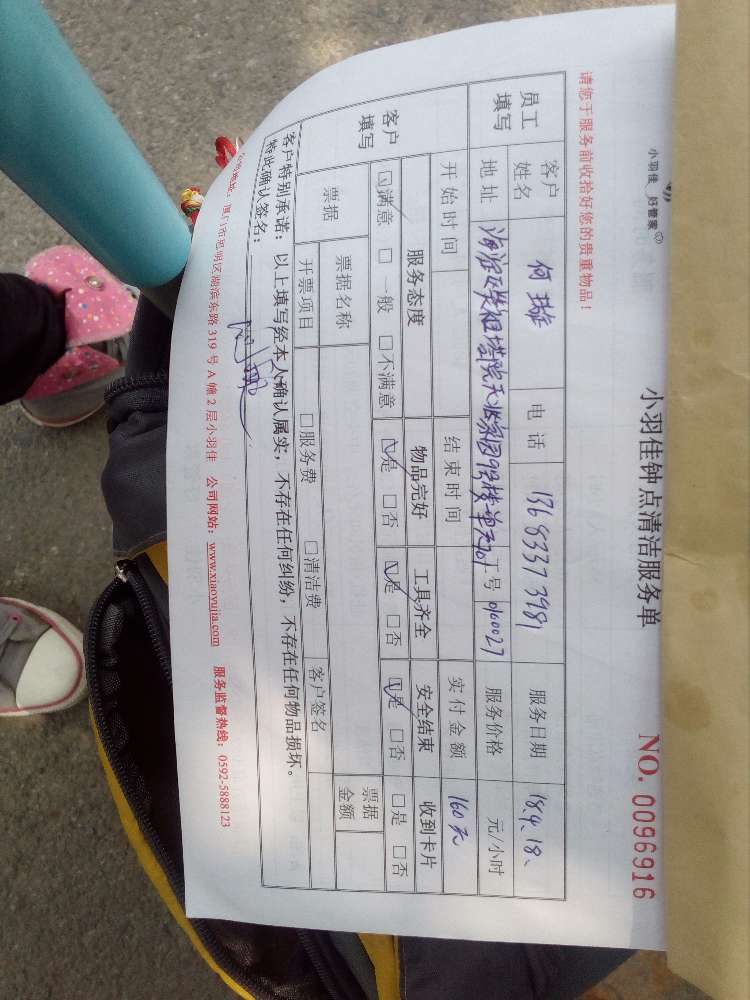 小羽佳 好管家
小羽佳钟点清洁服务单
NO. 0096916
请您于服务前收拾好您的贵重物品！
员工填写
客户姓名 何 电话 13683373981 服务日期 18.4.18、
地址 天兆家园 工号 0160027 服务价格 元/小时
开始时间 结束时间 实付金额 160元
客户填写
服务态度 物品完好 工具齐全 安全结束 收到卡片
☑满意 □一般 □不满意 ☑是 □否 ☑是 □否 ☑是 □否 □是 □否
票据 票据名称 票据金额
开票项目 □服务费 □清洁费 客户签名
客户特别承诺：以上填写经本人确认属实，不存在任何纠纷，不存在任何物品损坏。
特此确认签名：
地址：厦门市思明区湖滨东路 319 号 A 幢 2 层小羽佳 公司网站：www.xiaoyujia.com 服务监督热线：0592-5888123